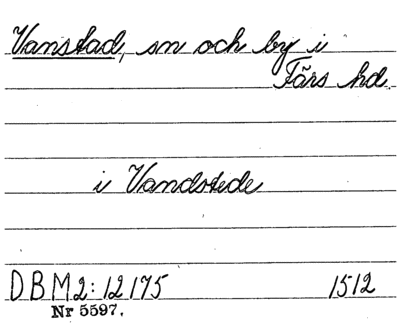 Vanstad, sn och by i
Färs hd.
i Vandstede
DBM2:12175 1512
Nr 5597.